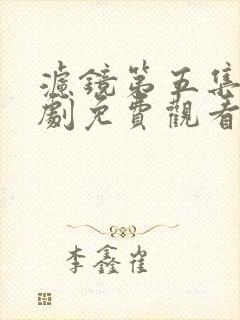 濾鏡第五集
劇免費觀看
李鑫崔